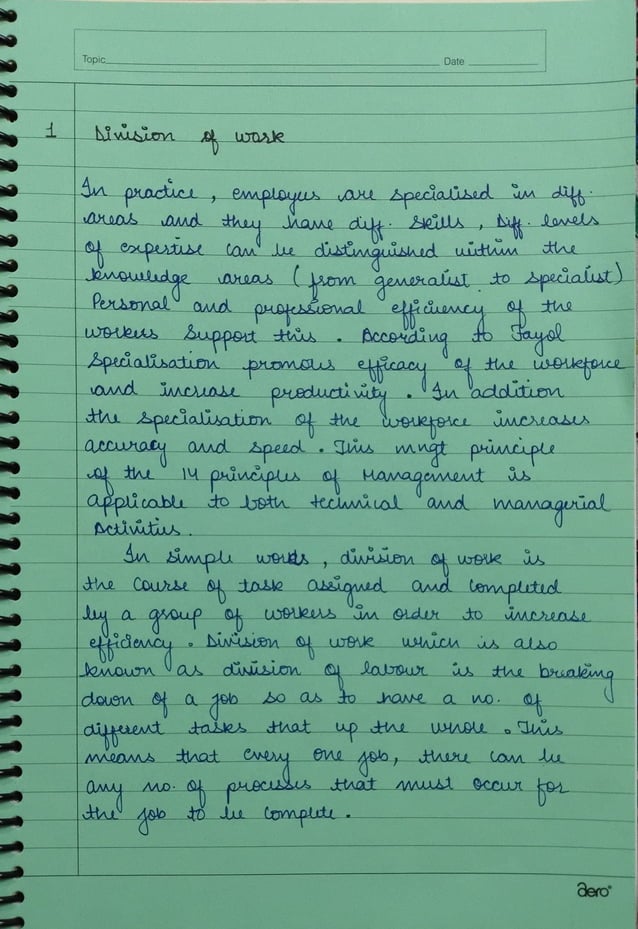 Topic Date
1 Division of work
In practice, employees are specialised in diff.
areas and they have diff. skills, Diff. levels
of expertise can be distinguished within the
knowledge areas (from generalist to specialist)
Personal and professional efficiency of the
workers support this. According to Fayol
specialisation promous efficacy of the workforce
and increase productivity. In addition
the specialisation of the workforce increases
accuracy and speed. This mngt principle
of the 14 principles of Management is
applicable to both technical and managerial
Activities.
In simple words, division of work is
the course of task assigned and completed
by a group of workers in order to increase
efficiency. Division of work which is also
known as division of labour is the breaking
down of a job so as to have a no. of
different tasks that up the whole. This
means that every one job, there can be
any no. of processes that must occur for
the job to be complete.
aero